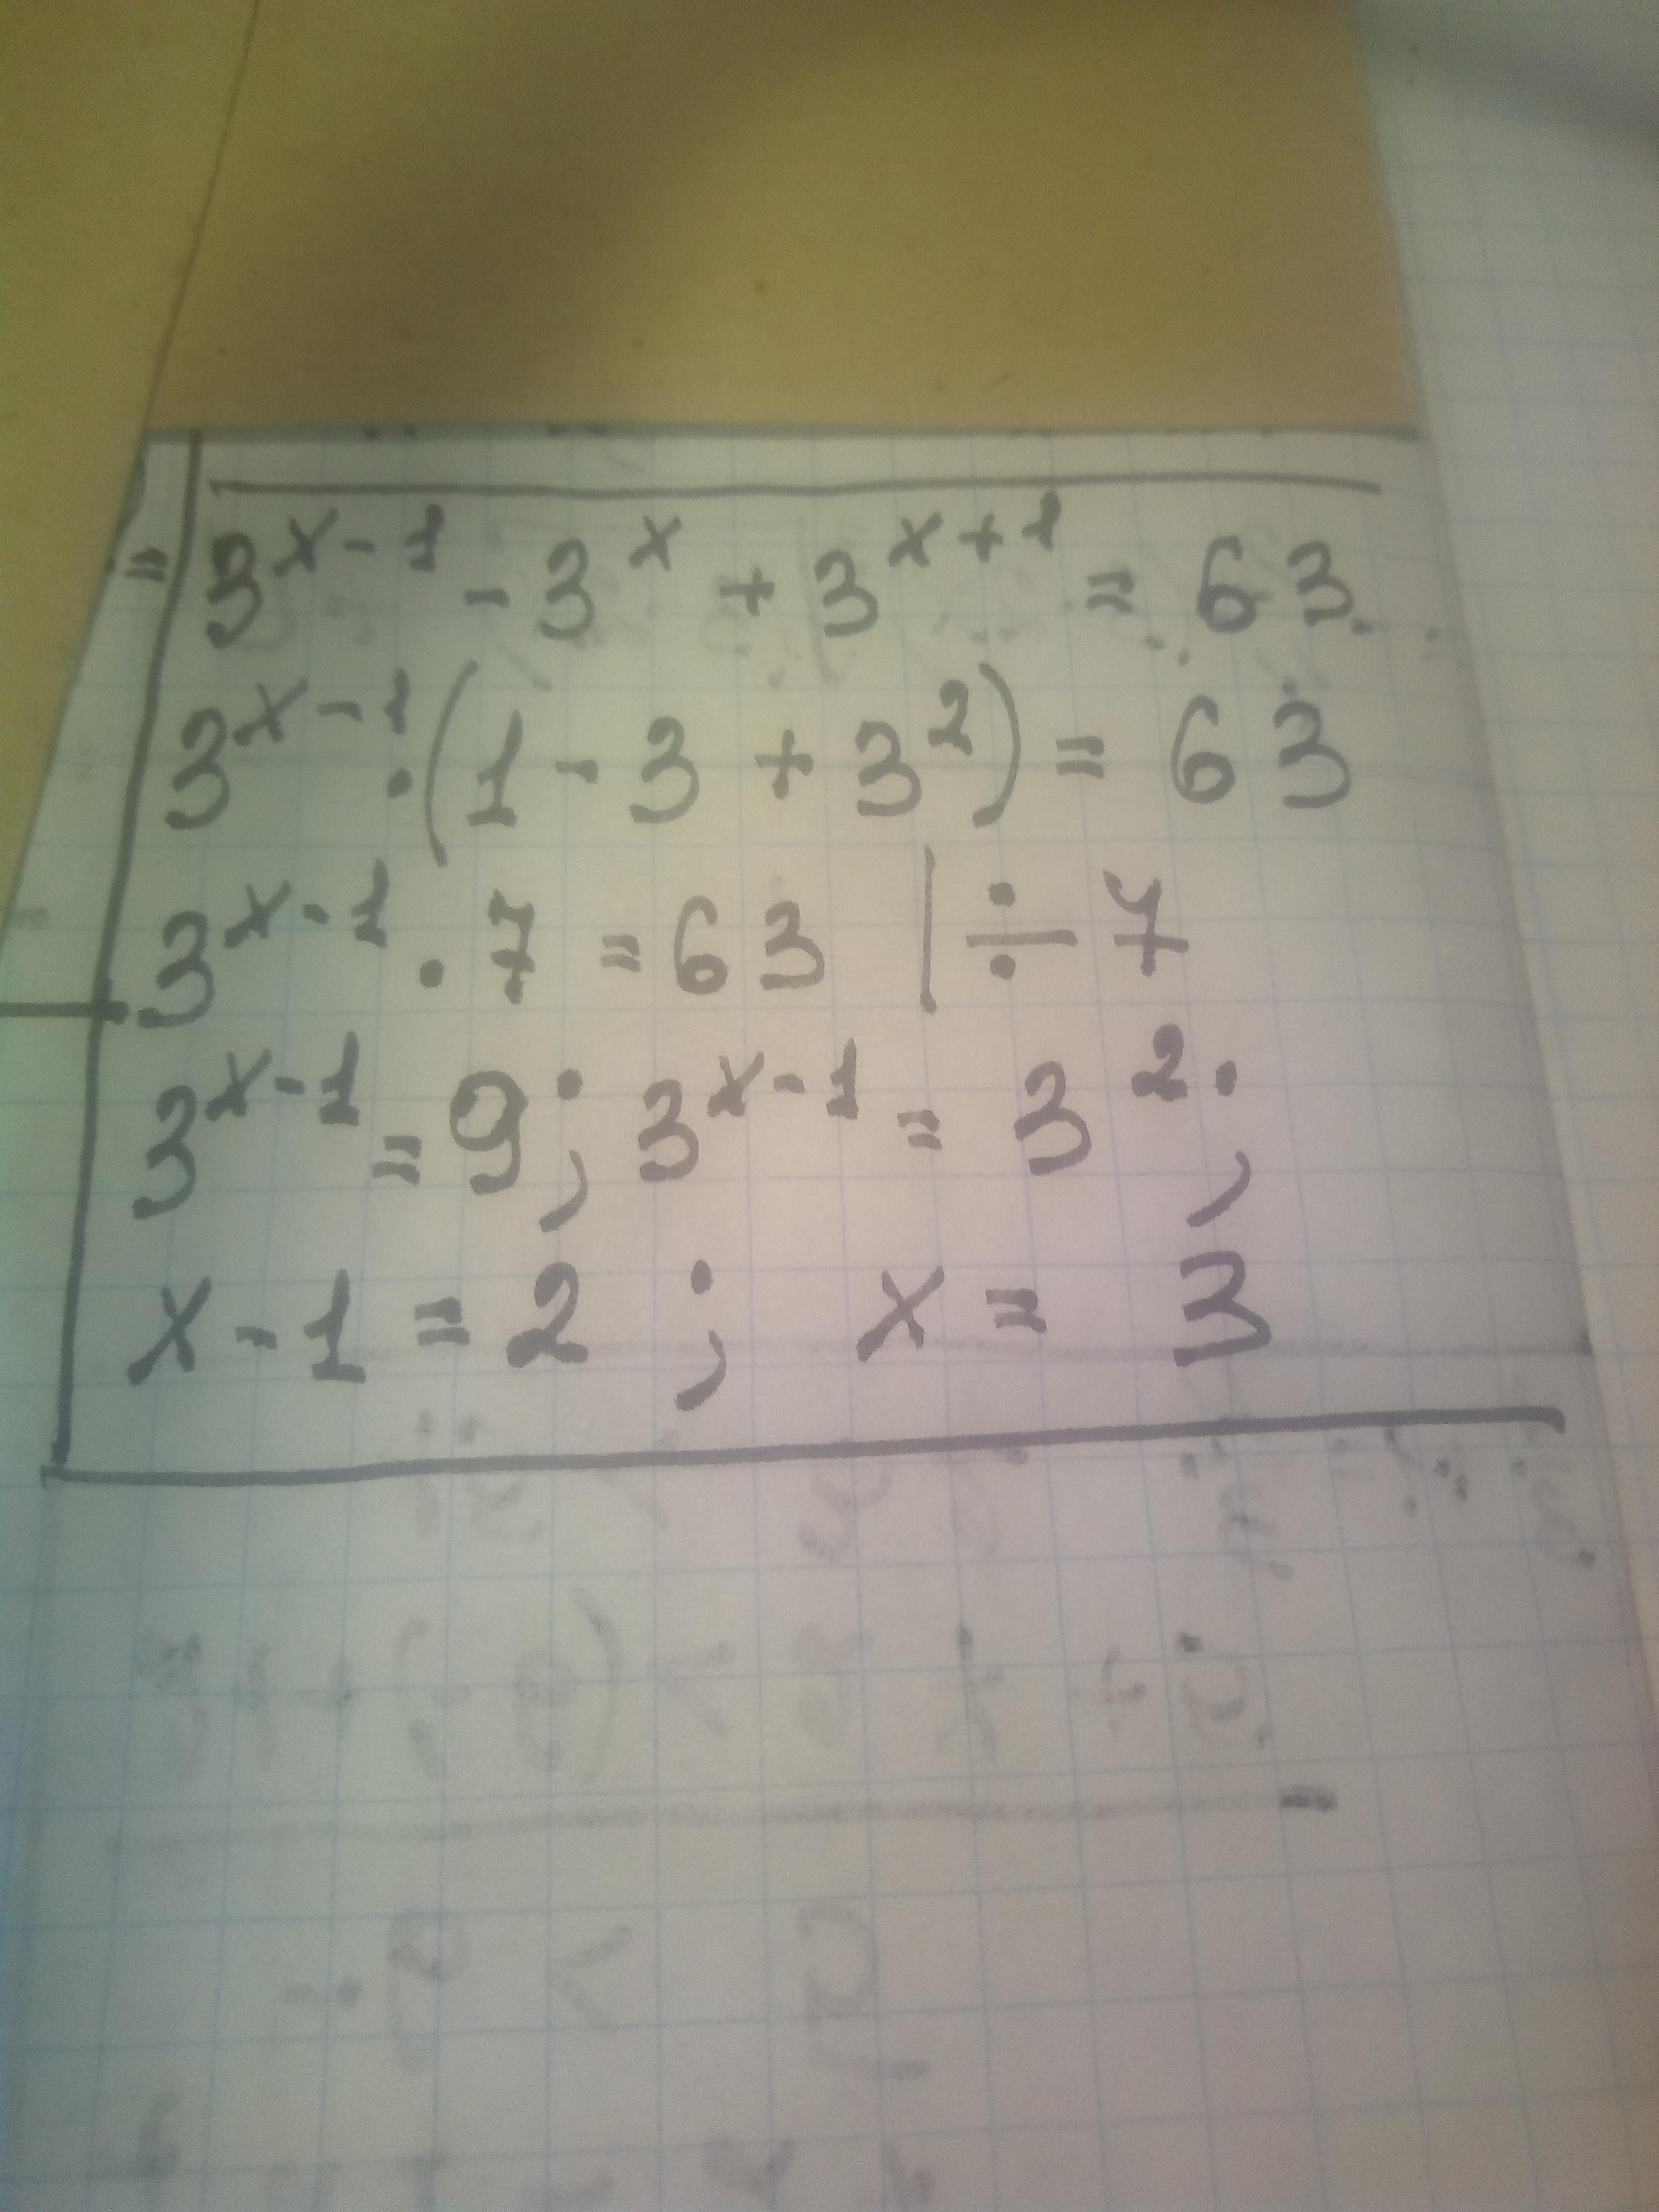 = 3^{x-1} - 3^x + 3^{x+1} = 63
3^{x-1} · (1 - 3 + 3^2) = 63
3^{x-1} · 7 = 63 | ÷ 7
3^{x-1} = 9 ; 3^{x-1} = 3^2 ;
x - 1 = 2 ; x = 3